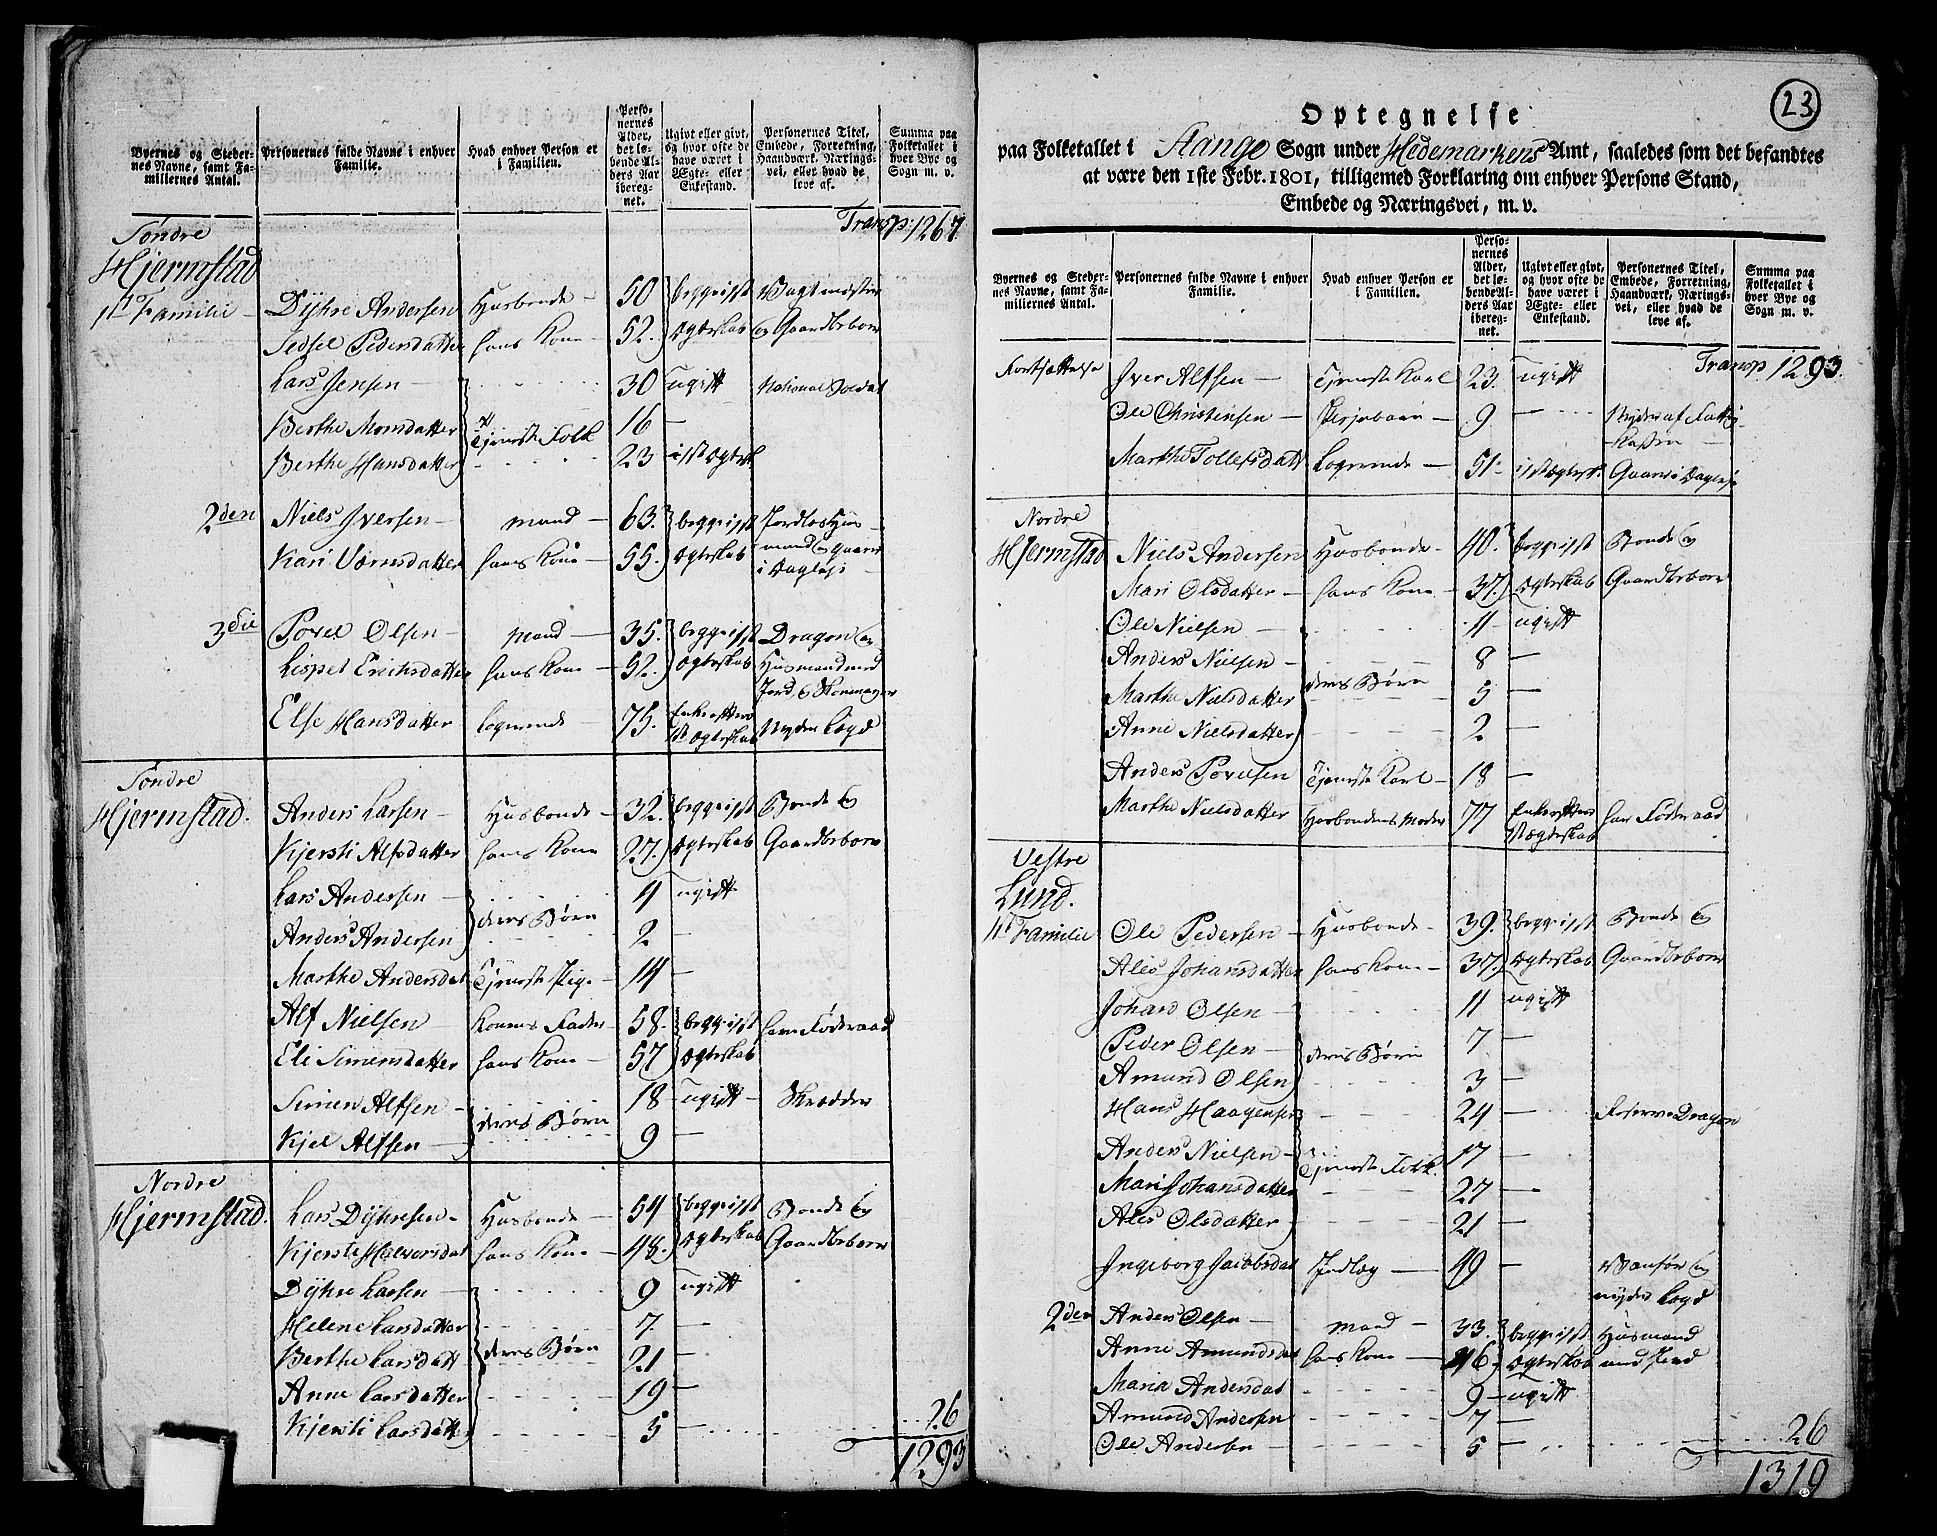 Byernes og Steder-
nes Navne, samt Fa-
milliernes Antal.
Personernes fulde Navne i enhver
Familie.
Hvad enhver Person er
i Familien.
Perso-
nernes
Alder,
det lø-
bende Al-
ders Aar
ibereg-
net.
Ugivt eller givt,
og hvor ofte de
have været i
Ægte- eller
Enkestand.
Personernes Titel,
Embede, Forretning,
Haandværk, Nærings-
vei, eller hvad de
leve af.
Summa paa
Folketallet i
hver Bye og
Sogn m. v.
Transp: 1267
Søndre
Hjermstad
1t Familie Dÿhre Andersen Husbonde 50 begge i 1st Vagtmester
Sidsel Pedersdatter hans Kone 52. Ægteskab og Gaardbeboer
Lars Jensen 30 ugift National Soldat
Berthe Monsdatter Tjeneste Folk 16 —
Berthe Hansdatter 23 i 1st Ægtesk
2den Niels Iversen mand 63. begge i 1st Jordløs Huus
Kari hans Kone 55. Ægteskab mand og gaaer
i Dagleje
3die Povel Olsen mand 35. begge i 1st Dragon og
Lispet Erichsdatter hans Kone 52. Ægteskab Husmand med
Jord, og Skomager
Else Hansdatter logerende 75. Enke efter Nyder Lægd
1st Ægteskab
Søndre
Hjermstad. Anders Larsen Husbonde 32. begge i 1st Bonde og
Kjersti Alfsdatter hans Kone 27. Ægteskab Gaardbeboer
Lars Andersen 4 ugift
deres Børn
Anders Andersen 2 —
Marthe Andersdat Tjeneste Pige 14 —
Alf Nielsen Konens Fader 58. begge i 1st har Føderaad
Eli Simensdatter hans Kone 57 Ægteskab
Simen Alfsen 18 ugift Skrædder
deres Børn
Kjel Alfsen 9 —
Nordre
Hjermstad. Lars Dÿhresen Husbonde 54 begge i 1st Bonde og
Kjersti Halvorsdat hans Kone 48. Ægteskab Gaardbeboer
Dÿhre Larsen 9 ugift
Helene Larsdatter 7 —
Berthe Larsdatt deres Børn 21 —
Anne Larsdatter 19 —
Kjersti Larsdatter 5 — 26
1293
23
Optegnelse
paa Folketallet i Stange Sogn under Hedemarkens Amt, saaledes som det befandtes
at være den 1ste Febr. 1801, tilligemed Forklaring om enhver Persons Stand,
Embede og Næringsvei, m. v.
Byernes og Steder-
nes Navne, samt Fa-
milliernes Antal.
Personernes fulde Navne i enhver
Familie.
Hvad enhver Person er
i Familien.
Perso-
nernes
Alder,
det lø-
bende Al-
ders Aar
ibereg-
net.
Ugivt eller givt,
og hvor ofte de
have været i
Ægte- eller
Enkestand.
Personernes Titel,
Embede, Forretning,
Haandværk, Nærings-
vei, eller hvad de
leve af.
Summa paa
Folketallet i
hver Bye og
Sogn m. v.
Transp 1293.
Fortsættelse Iver Alfsen Tjeneste Karl 23. ugift
Ole Christensen 9 — Nyder af Fattig
Kassen
Marthe Tollefsdatt Logerende 51 i 1st Ægtesk. Gaaer i Dagleje
Nordre
Hjermstad Niels Andersen Husbonde 40. begge i 1st Bonde og
Mari Olsdatter hans Kone 37. Ægteskab Gaardbeboer
Ole Nielsen 11 ugift
Anders Nielsen 8 —
deres Børn
Marthe Nielsdatter 5 —
Anne Nielsdatter 2 —
Anders Povelsen Tjeneste Karl 18 —
Marthe Nielsdatter Husbondens Moder 77 Enke efter har Føderaad
1st Ægteskab
Vestre
Lund.
1t Familie Ole Pedersen Husbonde 39. begge i 1st Bonde og
Ales Johansdatter hans Kone 37. Ægteskab Gaardbeboer
Johand Olsen 11 ugift
Peder Olsen deres Børn 7 —
Amund Olsen 3 —
Hans Haagensen 24 — Reserve Dragon
Anders Nielsen Tjeneste Folk 17 —
Mari Johansdatter 27 —
Ales Olsdatter 21 —
Ingeborg Jacobsdat Indlæg 49 — Vanfør og
nyder Lægd
2den Anders Olsen mand 33. begge i 1st Husmand
Anne Amundsdat hans Kone 46. Ægteskab med Jord
Maria Andersdat 9 ugift
Amund Andersen 7 —
Ole Andersen 5 — 26
1319